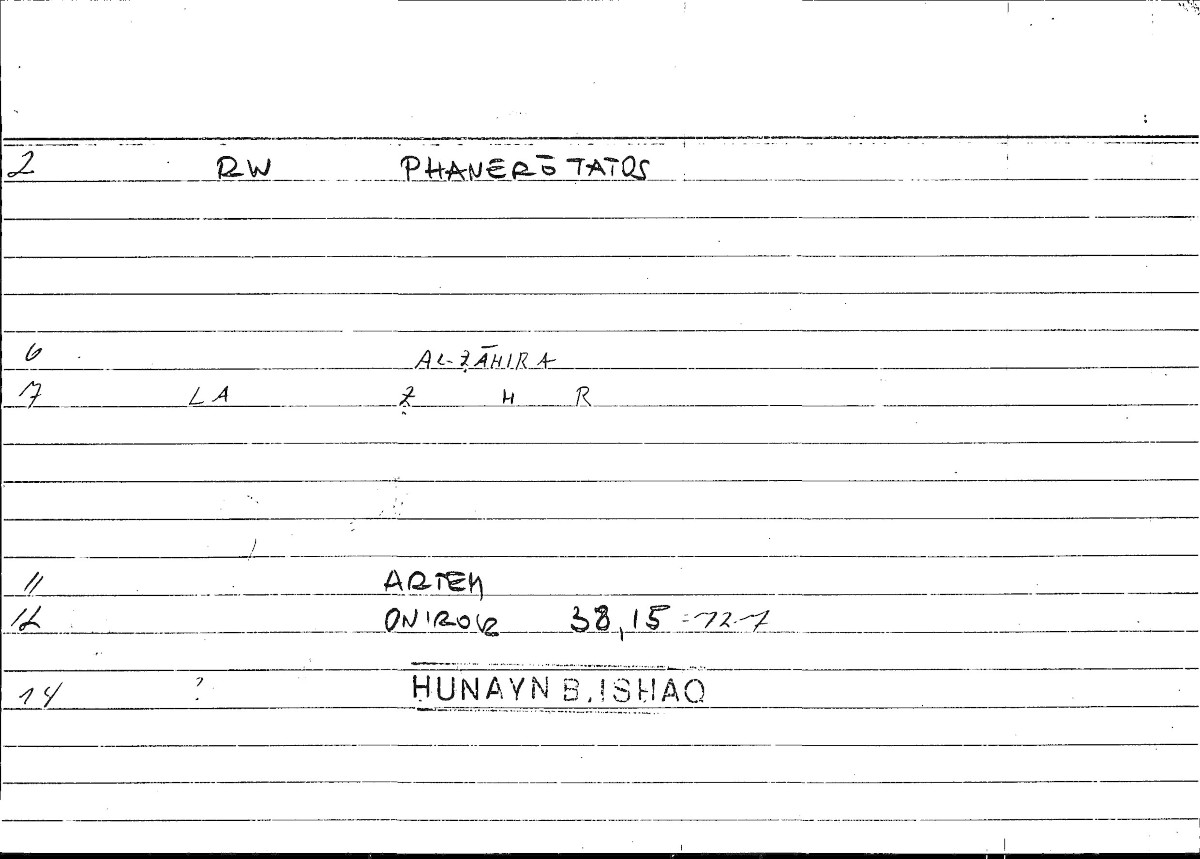 2 RW PHANERŌTATOS
6 AL-ẒĀHIRA
7 LA Ẓ H R
11 ARTEM
12 ONIROK 38,15 = 72-7
14 ? HUNAYN B. ISHAQ